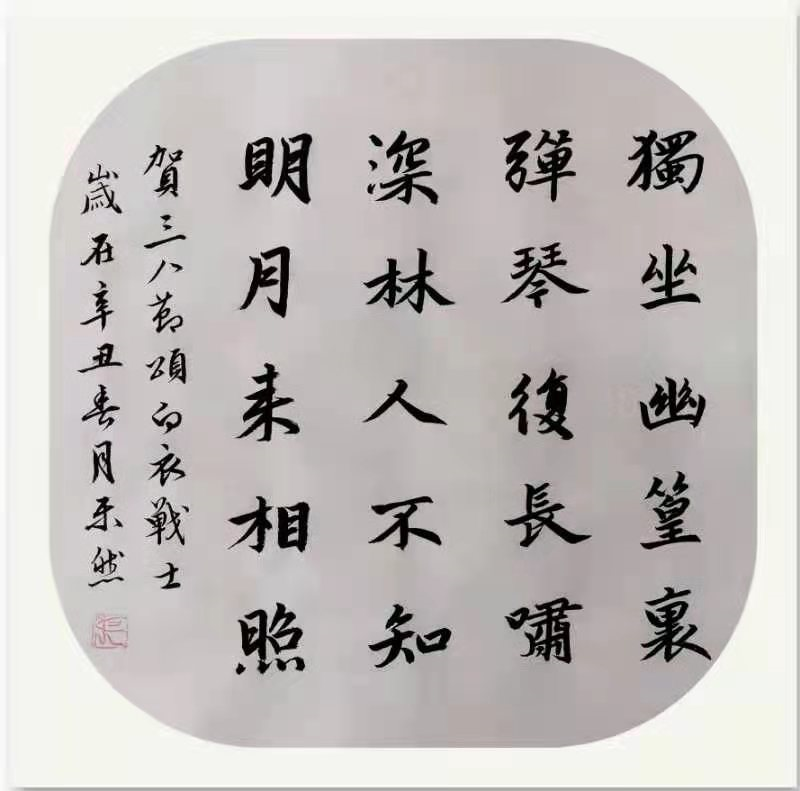 獨坐幽篁裏
彈琴復長嘯
深林人不知
明月来相照
賀三八節頌白衣戰士
歲在辛丑春月乐然